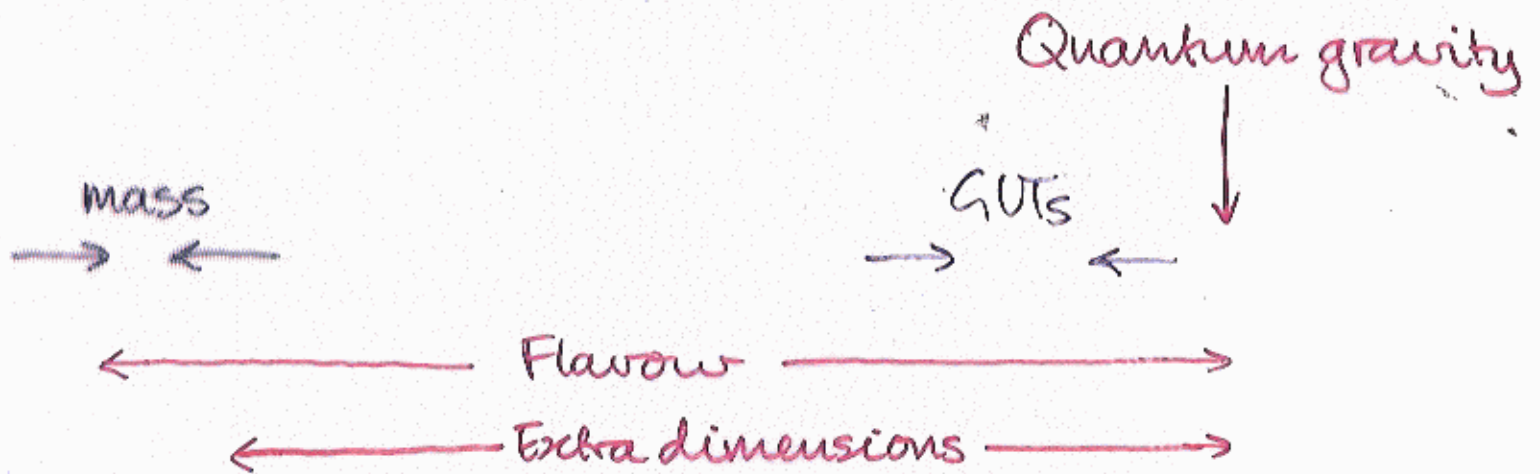 Quantum gravity
mass
GUTs
Flavour
Extra dimensions